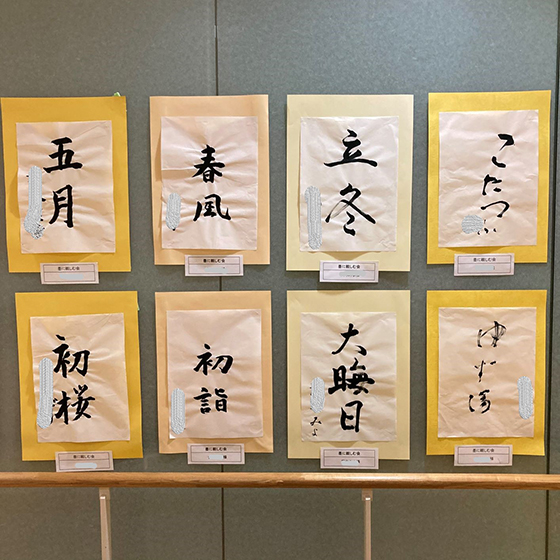 五月
書に親しむ会
春風
書に親しむ会
立冬
書に親しむ会
こたつ
書に親しむ会
初桜
書に親しむ会
初詣
書に親しむ会
様
大晦日
みよ
書に親しむ会
書に親しむ会
様